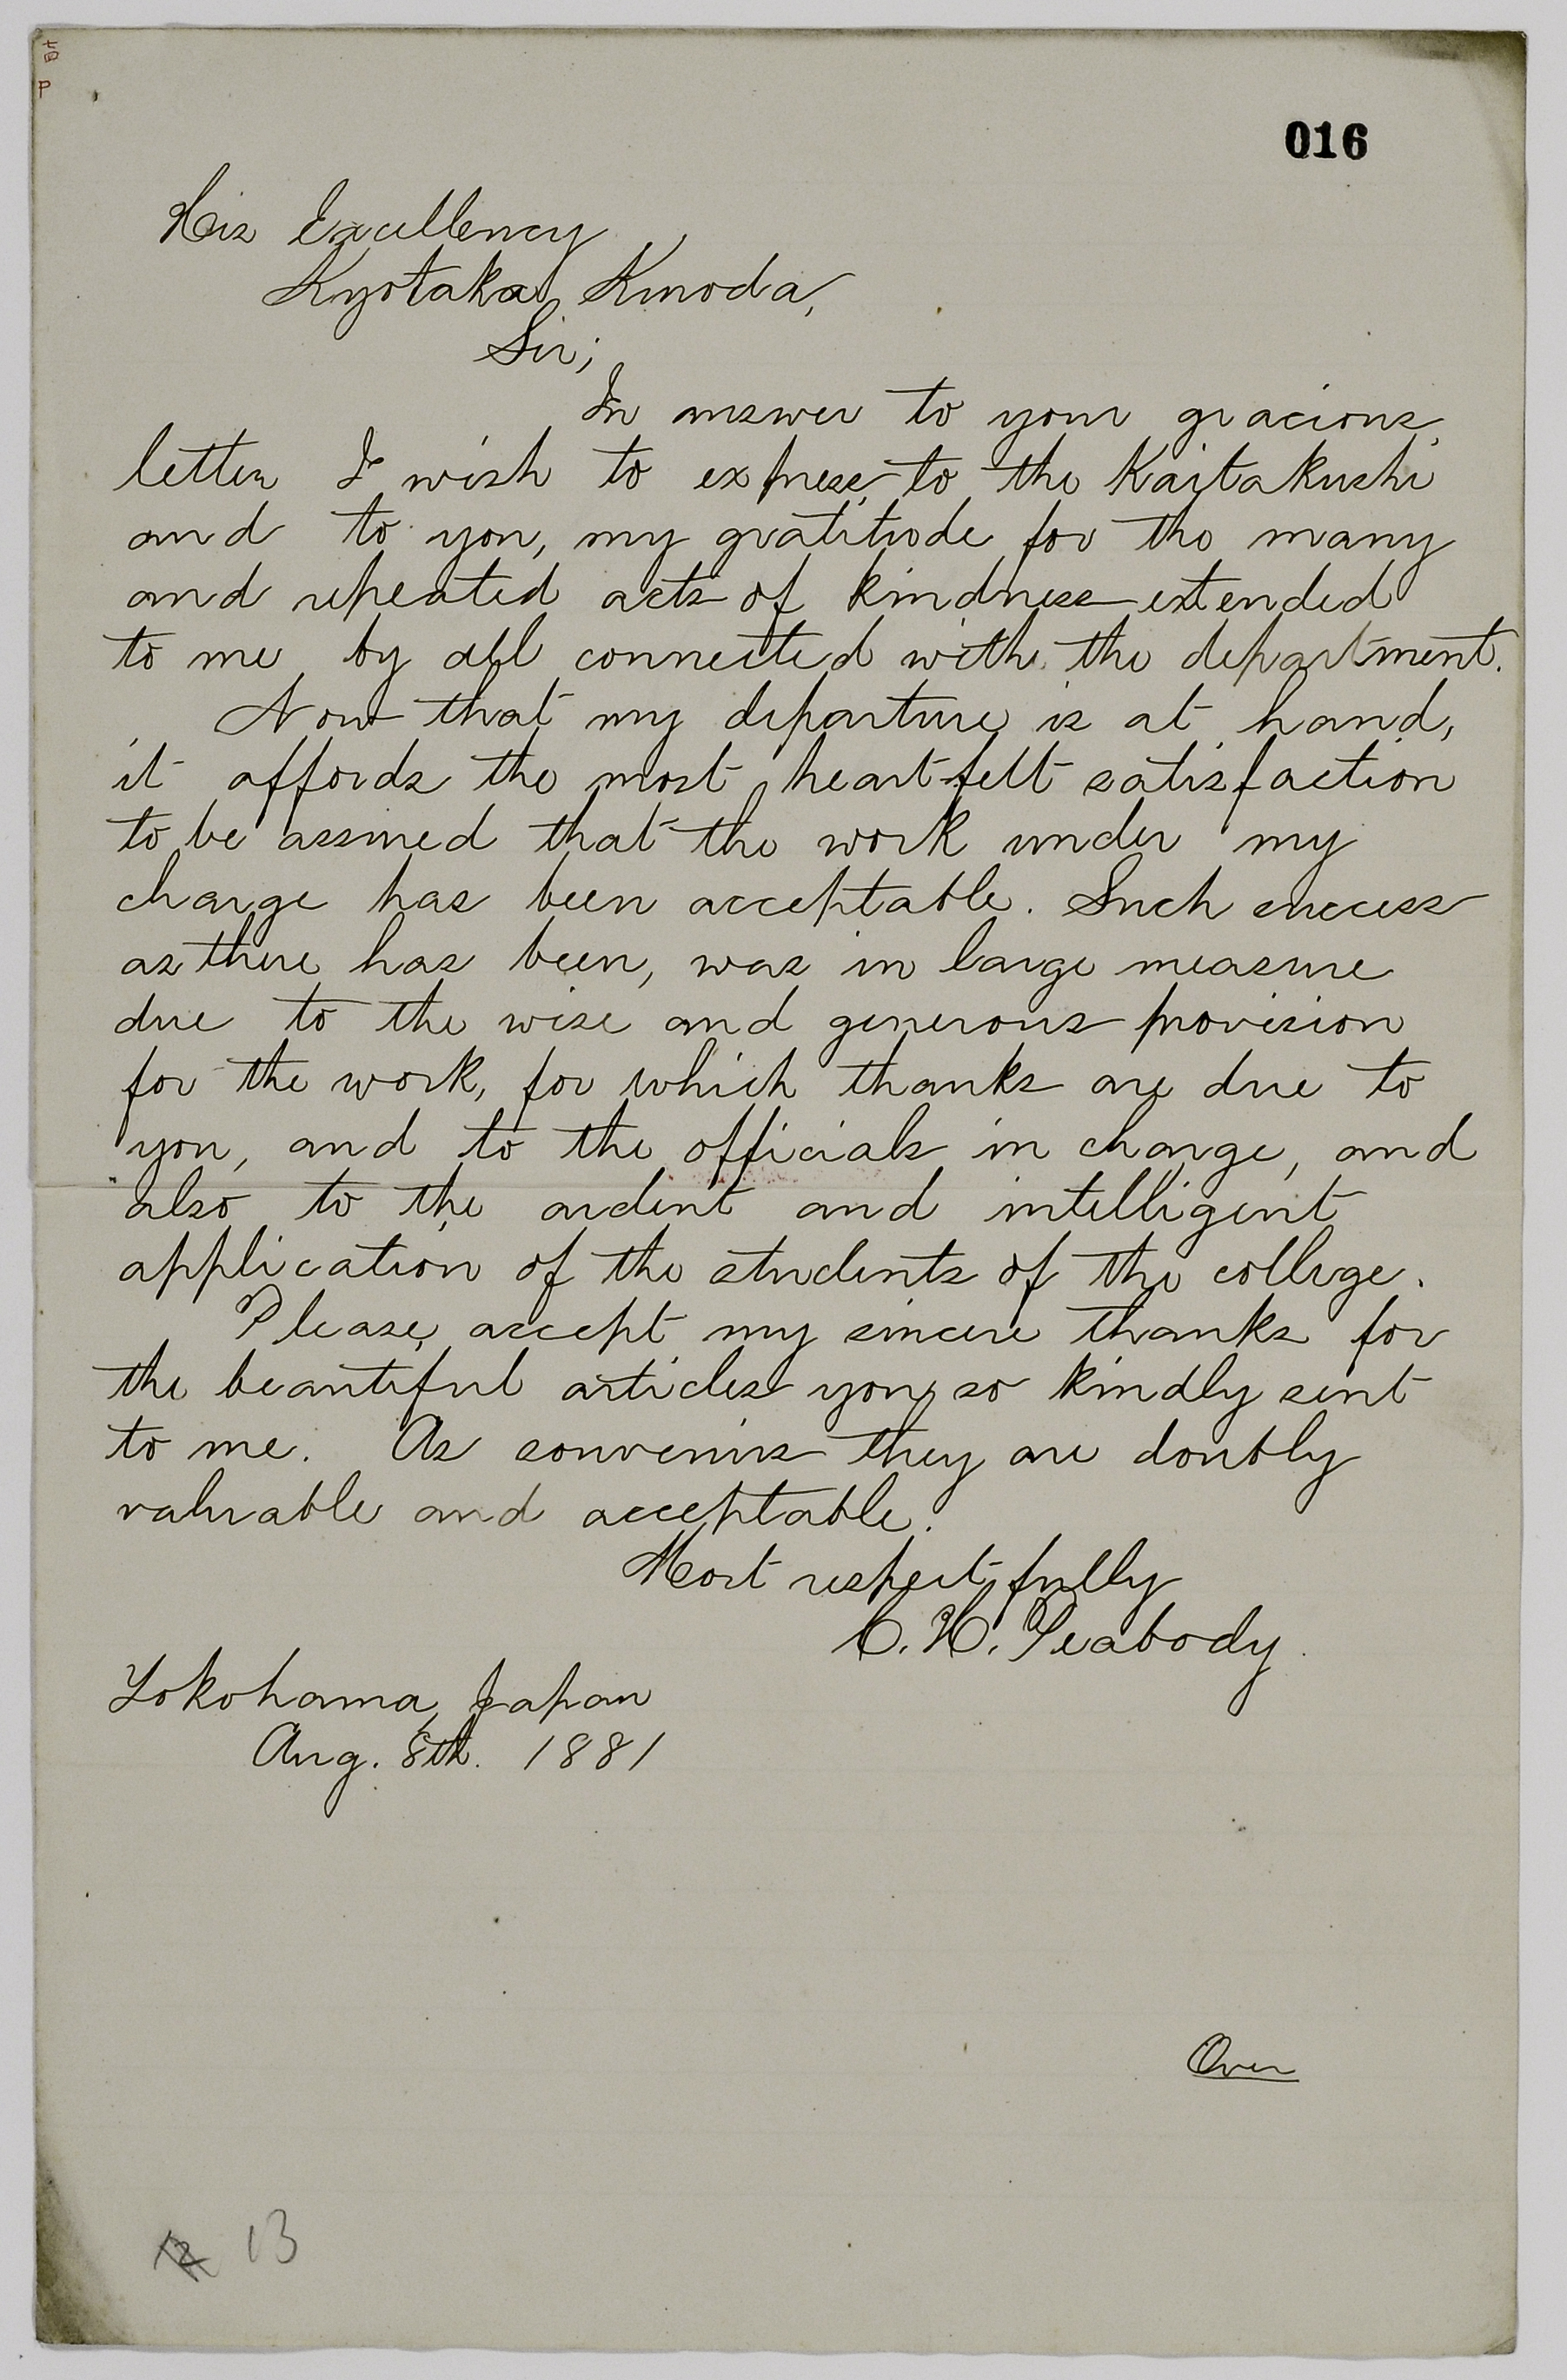 016
His Excellency
Kyotaka Kuroda,
Sir;
In answer to your gracious
letter I wish to express to the Kaitakushi
and to you, my gratitude for the many
and repeated acts of kindness extended
to me by all connected with the department.
Now that my departure is at hand,
it affords the most heart-felt satisfaction
to be assured that the work under my
charge has been acceptable. Such success
as there has been, was in large measure
due to the wise and generous provision
for the work, for which thanks are due to
you, and to the officials in charge, and
also to the ardent and intelligent
application of the students of the college.
Please accept my sincere thanks for
the beautiful articles you so kindly sent
to me. As souvenirs they are doubly
valuable and acceptable.
Most respectfully
C. H. Peabody.
Yokohama, Japan
Aug. 8th. 1881
Over
12 13